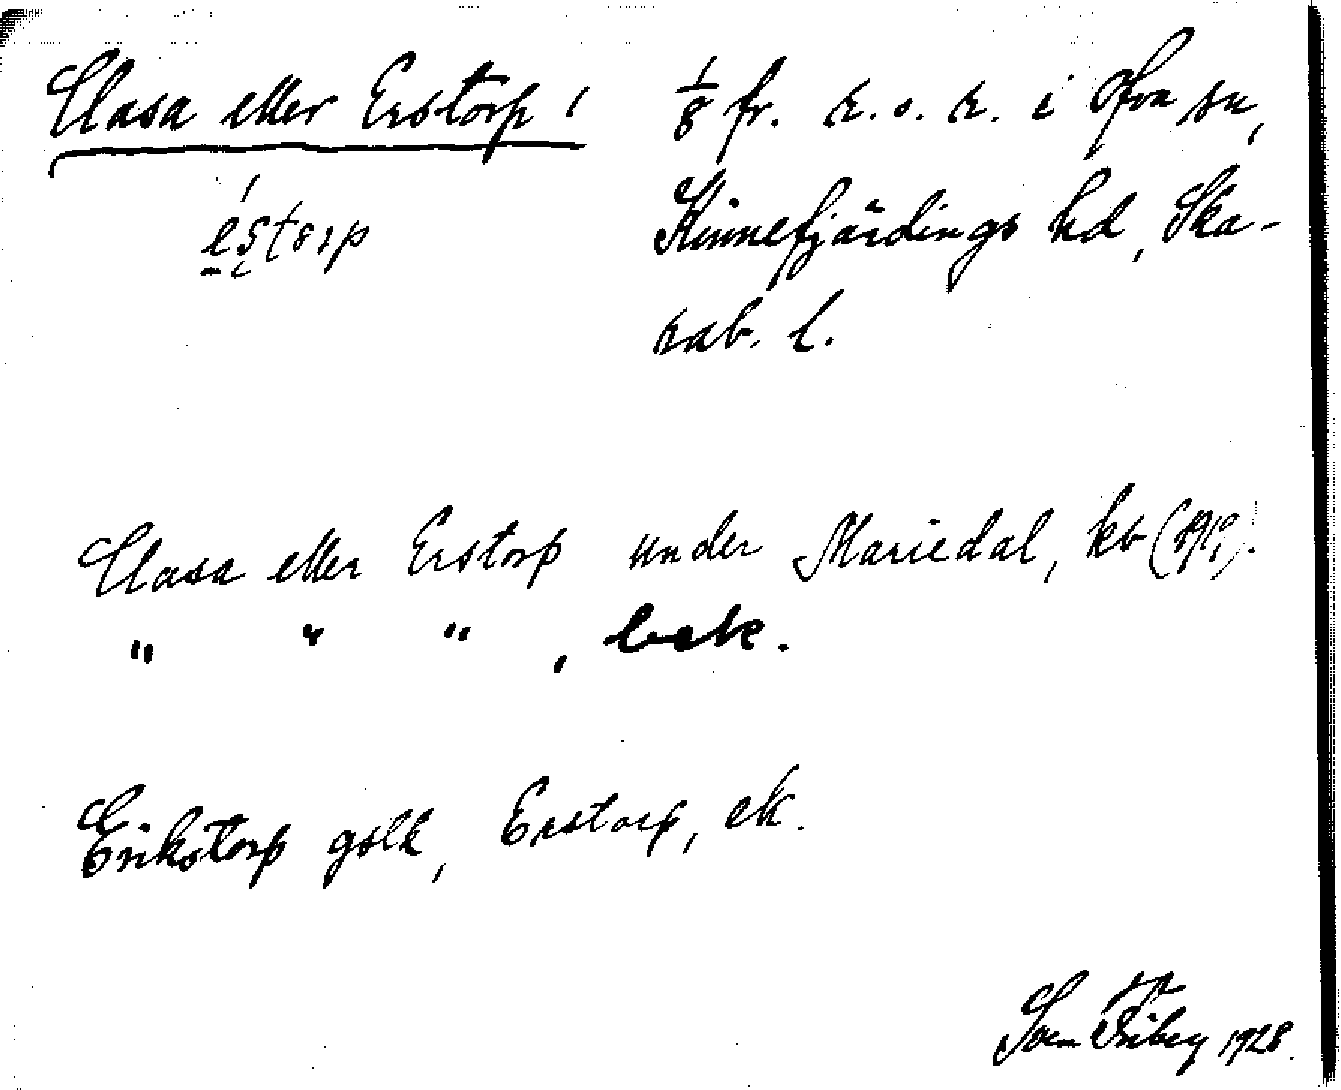 Clasa eller Erstorp, 1/8 fr. r. o. r. i Ofva sn,
éstorp Kinnefjärdings hd, Ska-
rab. l.
Clasa eller Erstorp under Mariedal, kb (1919).
" " " , bek.
Erikstorp gslk, Erstorp, ek.
Sven Friberg 1928.